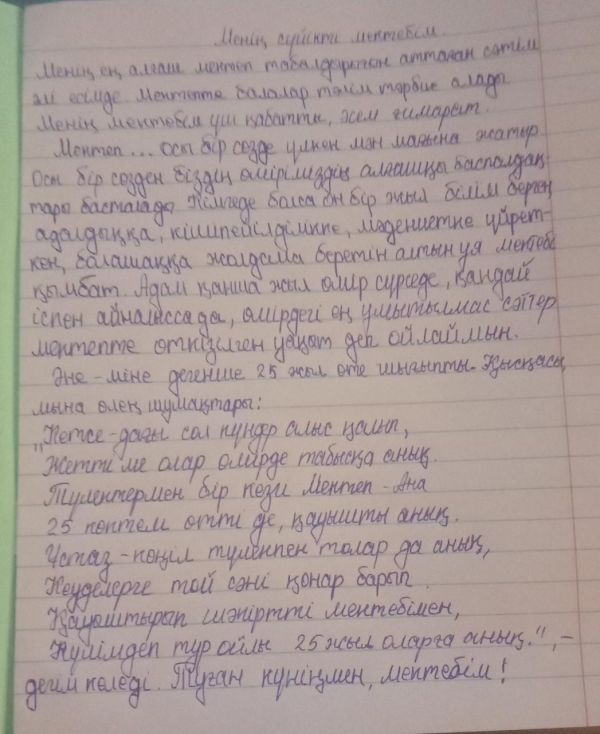 Менің сүйікті мектебім.
Менің ең алғаш мектеп табалдырығын аттаған сәтім
әлі есімде. Мектепте балалар тәлім тәрбие алады
Менің мектебім үш қабатты, әсем ғимарат.
Мектеп... осы бір сөзде үлкен мән мағына жатыр
Осы бір сөзден біздің өміріміздің алғашқы баспалдақ-
тары басталады Кімгеде болса он бір жыл білім берген
адалдыққа, кішіпейілділікке, мәдениетке үйрет-
кен, балашаққа жолдама беретін алтын ұя мектебі
қымбат. Адам қанша жыл өмір сүрседе, қандай
іспен айналысса да, өмірдегі ең ұмытылмас сәттер
мектепте өткізілген уақыт деп ойлаймын.
Әне-міне дегенше 25 жыл өте шығыпты. Қысқасы,
мына өлең шумақтары:
„Кетсе-дағы сол күндер алыс қалып,
Жетті ме олар өмірде табысқа анық.
Түлектермен бір кезі Мектеп-Ана
25 көктем өтті де, қауышты анық.
Ұстаз-көңіл түлекпен толар да анық,
Кеуделерге той сәні қонар барып.
Қауыштырып шәкіртті мектебімен,
Күлімдеп тұр ойлы 25 жыл оларға анық.", –
дегім келеді. Туған күніңмен, мектебім!